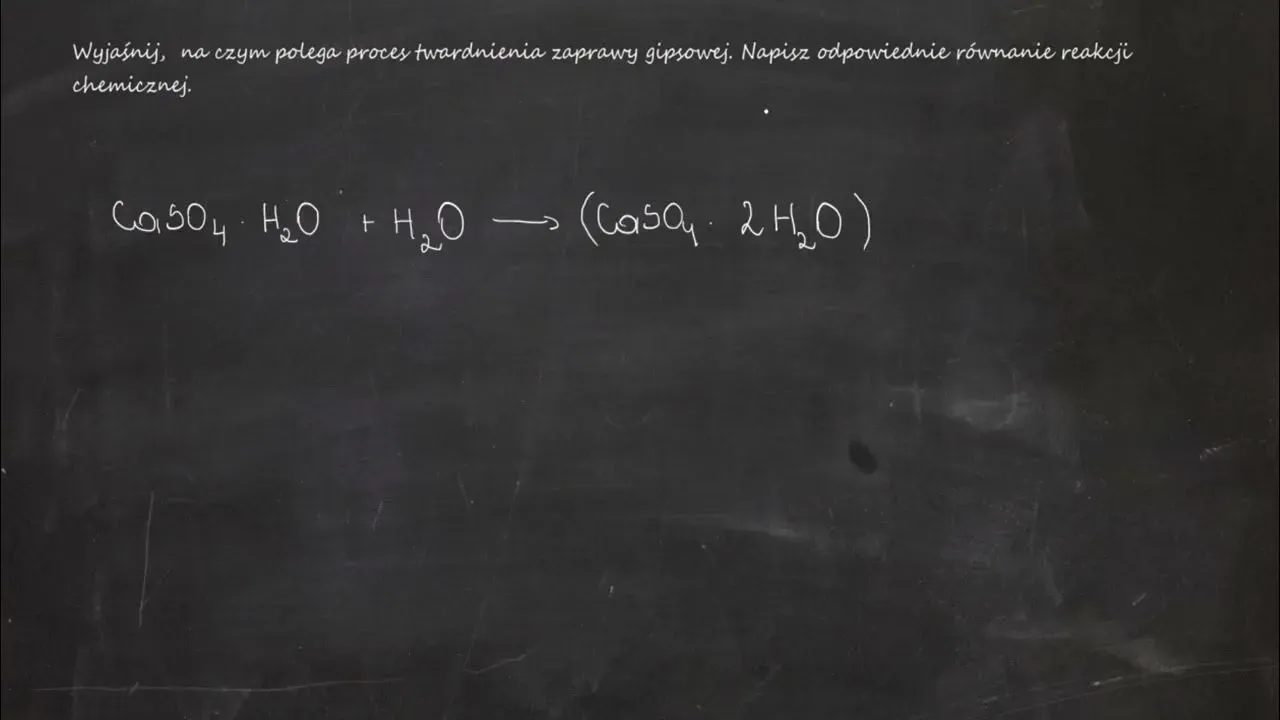 Wyjaśnij, na czym polega proces twardnienia zaprawy gipsowej. Napisz odpowiednie równanie reakcji
chemicznej.
CaSO₄ · H₂O + H₂O ⟶ (CaSO₄ · 2H₂O)